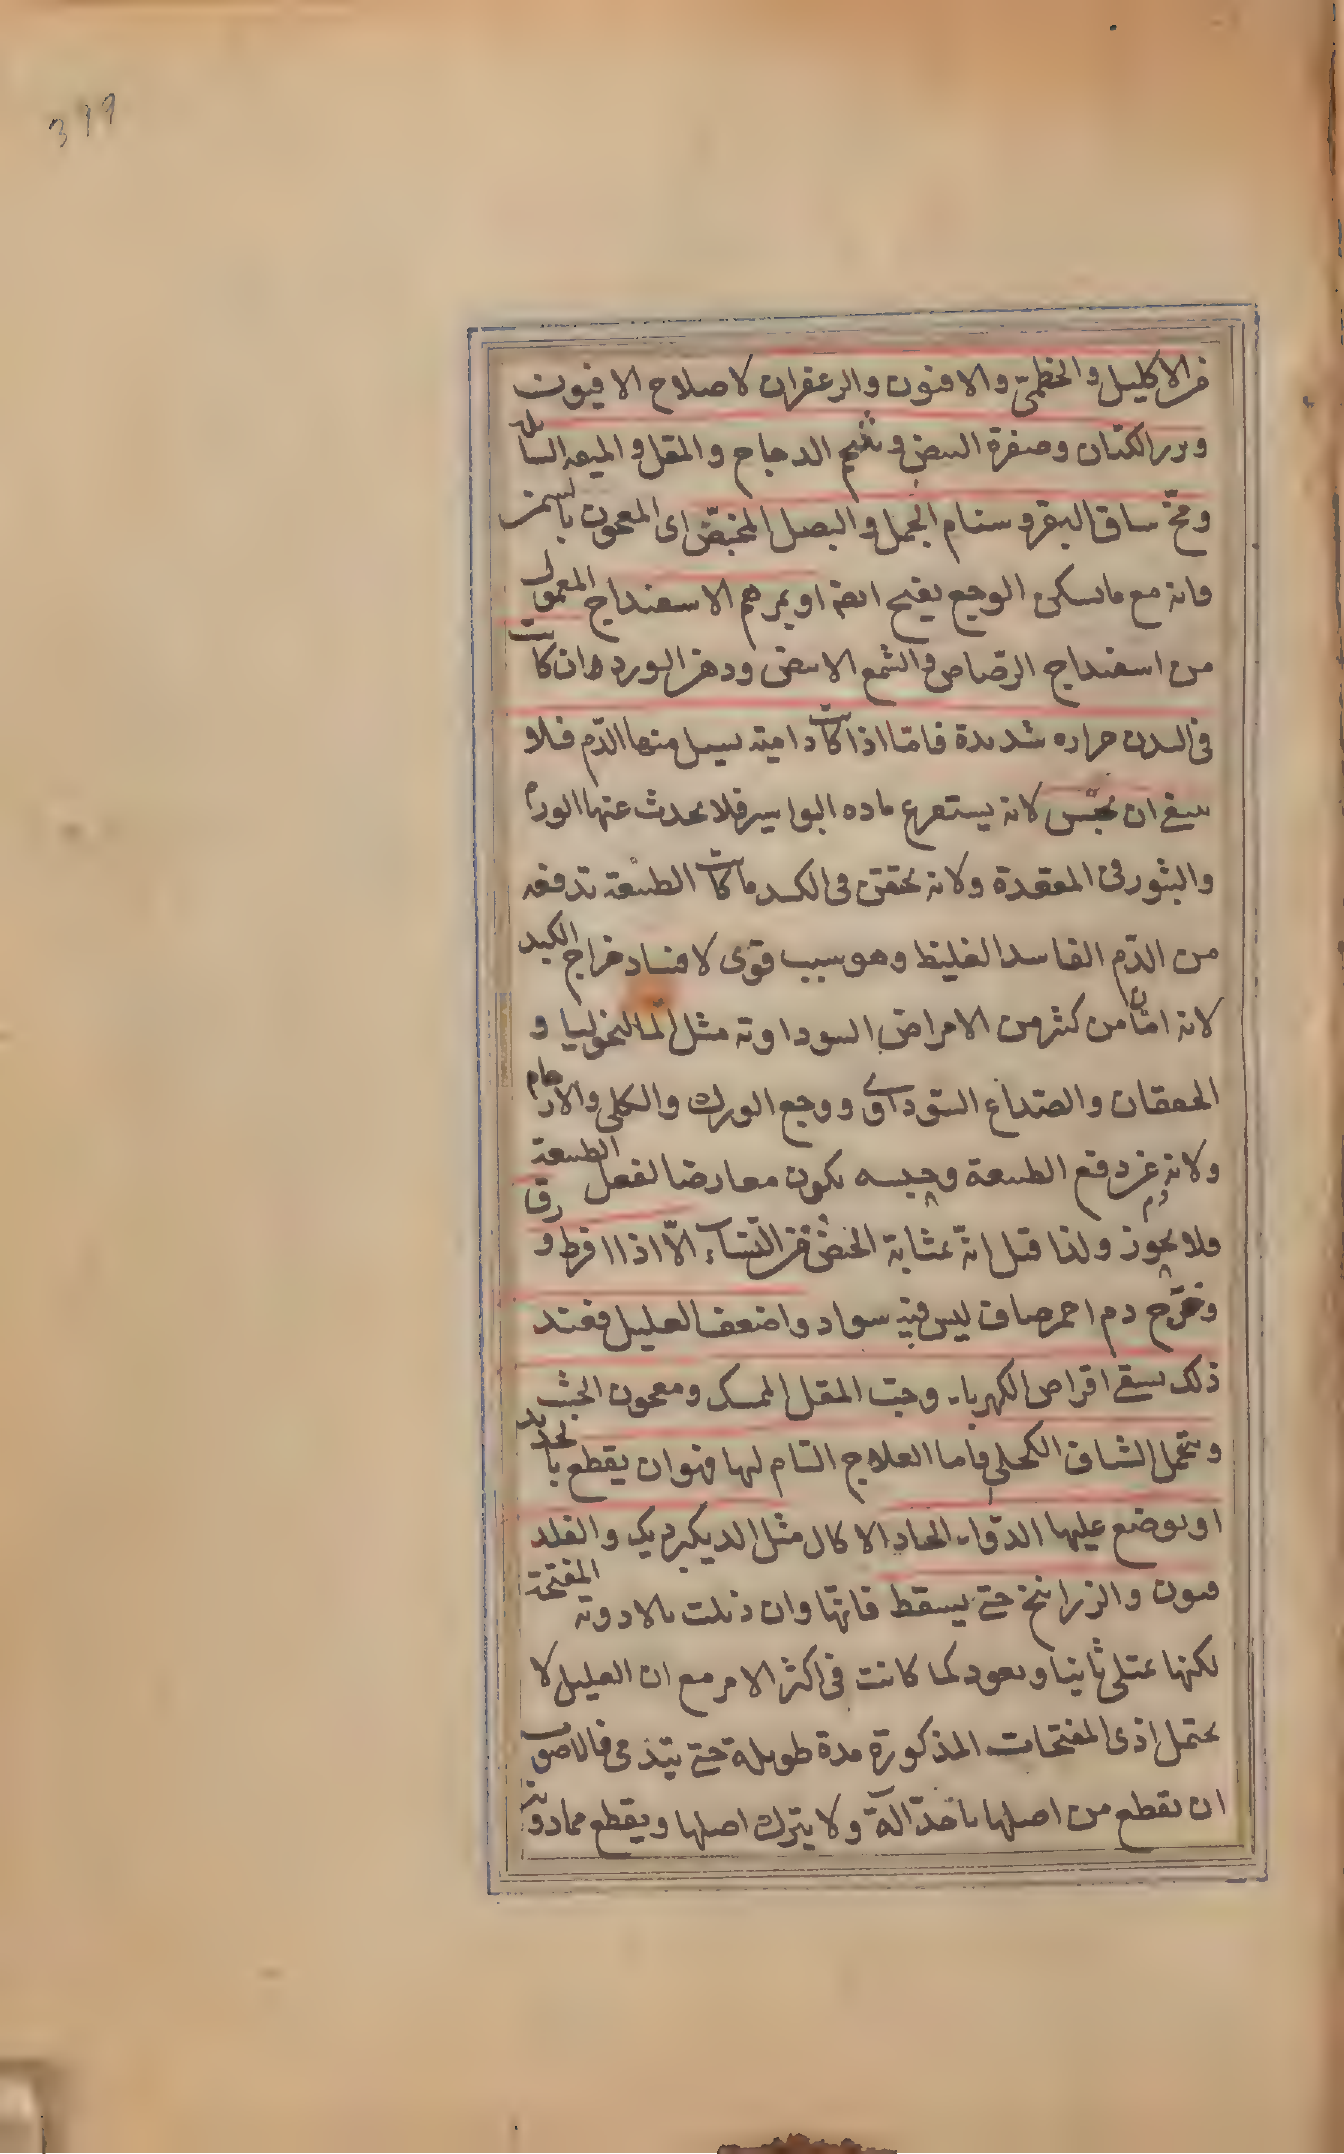 399
من الاكليل والخطمى والافيون والزعفران لاصلاح الافيون
وبزر الكتان وصفرة البيض وشحم الدجاج والمقل والميعه السايله
ومخ ساق البقر وسنام الجمل والبصل المخبص اى المعجون بالسمن
فانه مع مايسكن الوجع يفتح ايضا او بمرهم الاسفيداج المعمول
من اسفيداج الرصاص والشمع الابيض ودهن الورد ان كانت
فى البدن حراره شديدة فامّا اذا كانت دامية يسيل منها الدّم فلا
ينبغى ان يحبس لانه يستفرغ ماده البواسير فلا يحدث عنها الورم
والبثور فى المقعدة ولانه يحتقن فى الكبد ما كانت الطبيعة تدفعه
من الدّم الفاسد الغليظ وهو سبب قوى لافساد مزاج الكبد
لانه امان من كثير من الامراض السوداوية مثل المالنخوليا و
الخفقان والصّداع السّوداوى ووجع الورك والكلى والارحام
ولانه عن دفع الطبيعة وحبسه يكون معارضا لفعل الطبيعة
ولا يجوز ولذا قيل انه بمثابة الحيض من النّساء الّا اذا افرط و
وخرج دم احمر صاف ليس فيه سواد واضعف العليل فعند
ذلك يسقى اقراص الكهرباء وحبّ المقل الممسك ومعجون الخبث
ويتحمل الشياف الكحلى فاما العلاج التام لها فهو ان يقطع بالحديد
او يوضع عليها الدّواء الحاد الاكال مثل الديك برديك والفلد
فيون والزرانيخ حتى يسقط فانها وان ذبلت بالادوية المفتحة
لكنها تمتلى ثانيا ويعود كما كانت فى اكثر الامر مع ان العليل لا
يحتمل اذى المفتحات المذكورة مدة طويلة حتى يتدمى فالاصوب
ان يقطع من اصلها باحدّ آلة ولا يترك اصلها ويقطع مما دونه